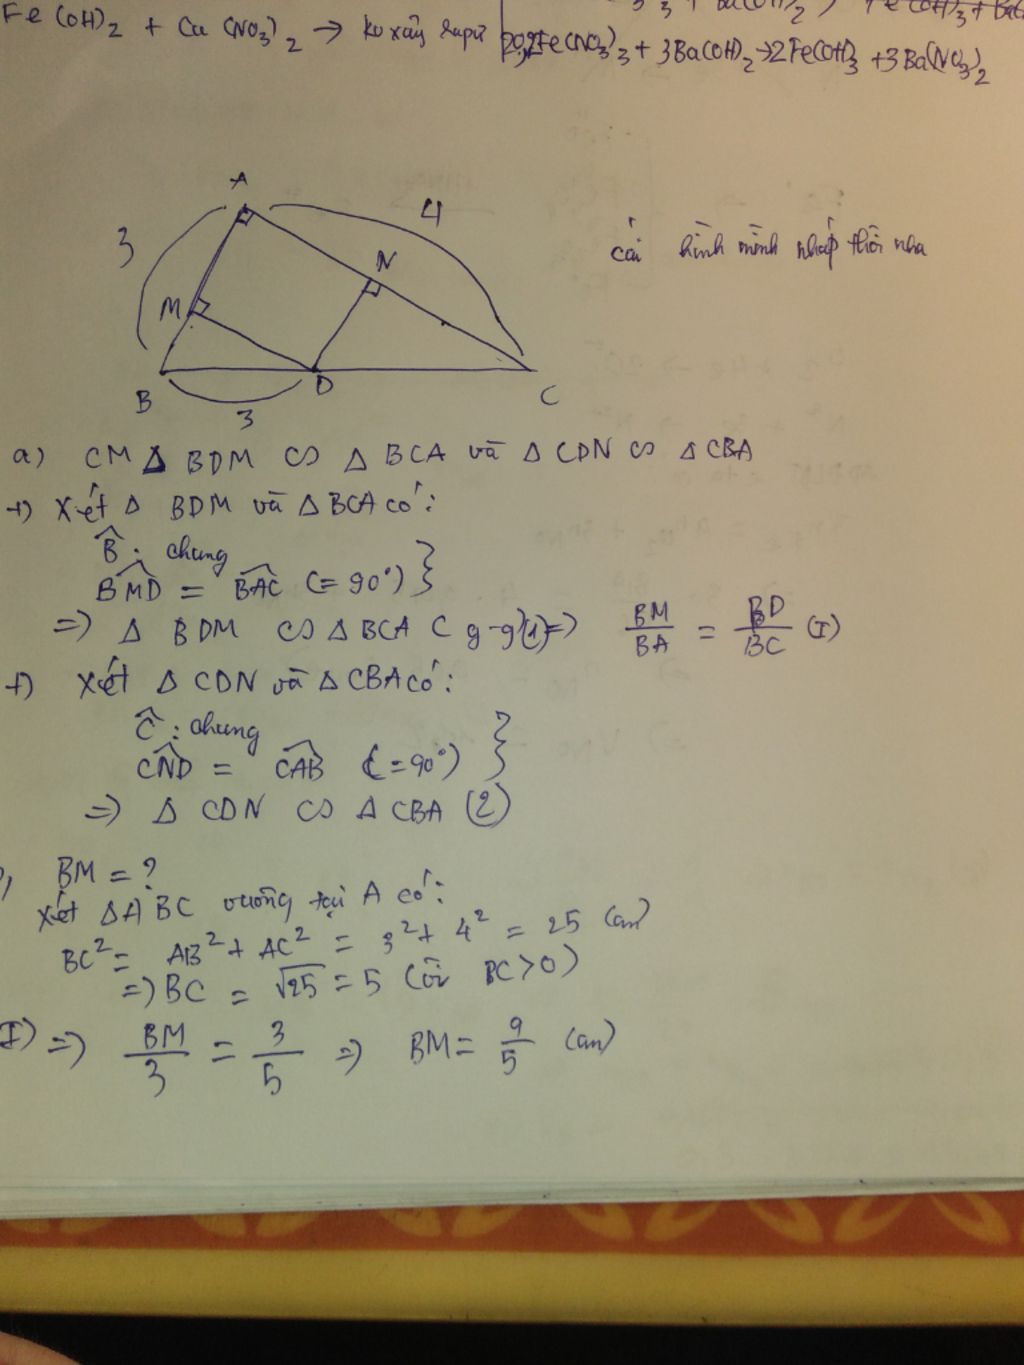 Fe(OH)₂ + Cu(NO₃)₂ → ko xảy ra pư
2Fe(NO₃)₃ + 3Ba(OH)₂ → 2Fe(OH)₃ + 3Ba(NO₃)₂
A
3
4
cái hình mình nháp thôi nha
N
M
B
D
C
3
a) CM Δ BDM ∽ Δ BCA và Δ CDN ∽ Δ CBA
+) Xét Δ BDM và Δ BCA có:
B̂ : chung
BMD = BAC (= 90°) }
=> Δ BDM ∽ Δ BCA (g-g)(1) => BM/BA = BD/BC (I)
+) Xét Δ CDN và Δ CBA có:
Ĉ : chung
CND = CAB (= 90°) }
=> Δ CDN ∽ Δ CBA (2)
BM = ?
Xét ΔABC vuông tại A có:
BC² = AB² + AC² = 3² + 4² = 25 (cm)
=> BC = √25 = 5 (vì BC > 0)
(I) => BM/3 = 3/5 => BM = 9/5 (cm)